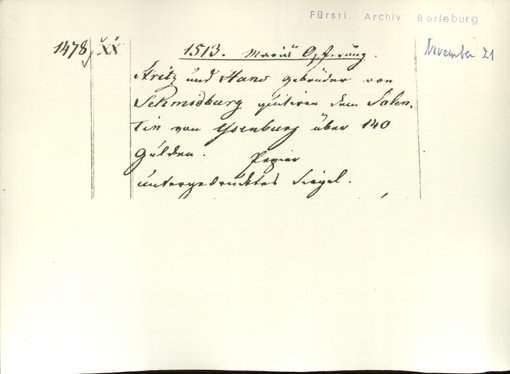 Fürstl. Archiv Berleburg
1478, XX 1513. Mariä Opferung. November 21
Fritz und Hans gebrüder von
Schmidburg quitiren dem Salen-
tin von Ysenburg über 140
Gulden. Papier
untergedrucktes Siegel.